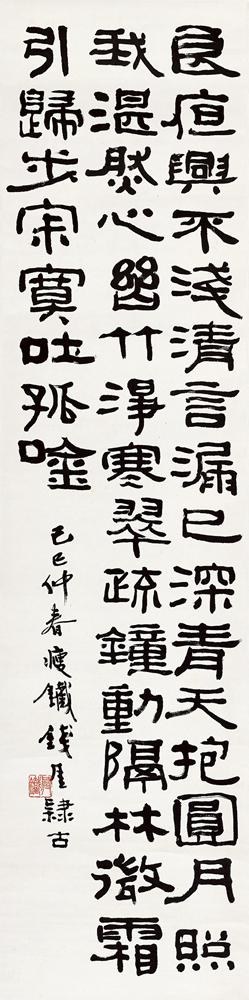 良夜興不淺清言漏已深青天抱圓月照
我湛然心幽竹淨寒翠疏鐘動隔林微霜
引歸步寂寞吐孤唫
己巳仲春瘦鐵錢厓隸古